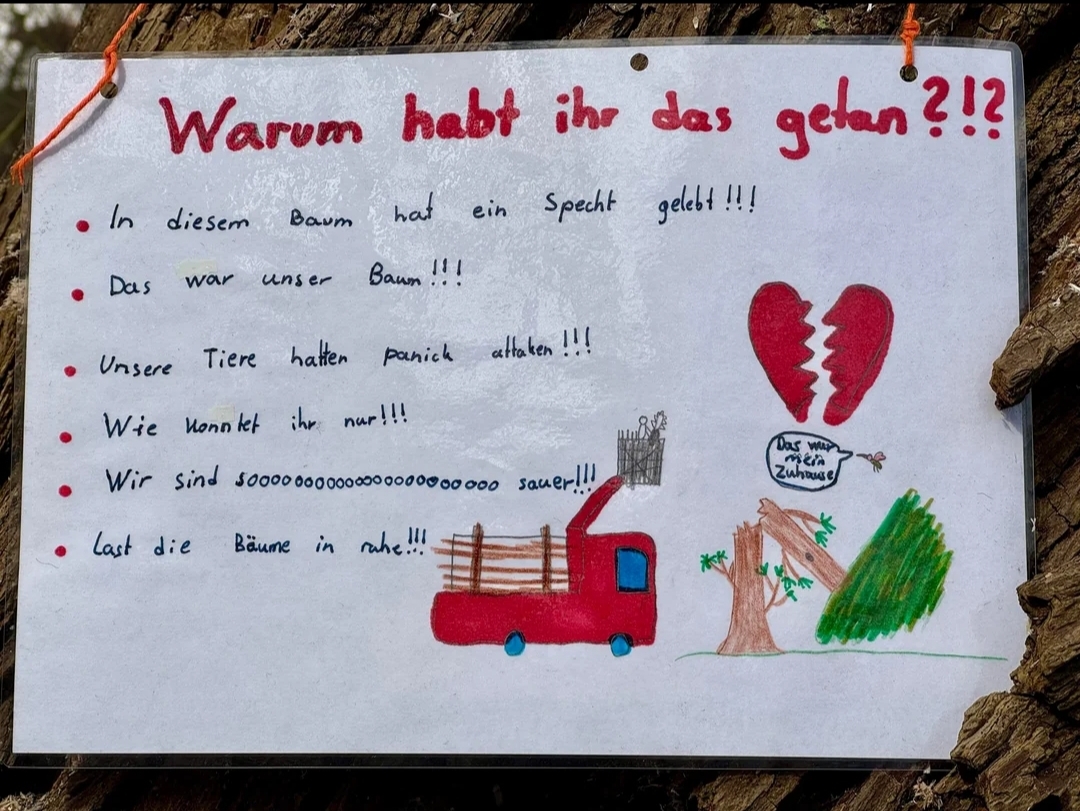 Warum habt ihr das getan?!?
In diesem Baum hat ein Specht gelebt!!!
Das war unser Baum!!!
Unsere Tiere hatten panick attaken!!!
Wie konntet ihr nur!!!
Wir sind soooooooooooooooooooooo sauer!!!
Last die Bäume in ruhe!!!
Das war
mein
Zuhause